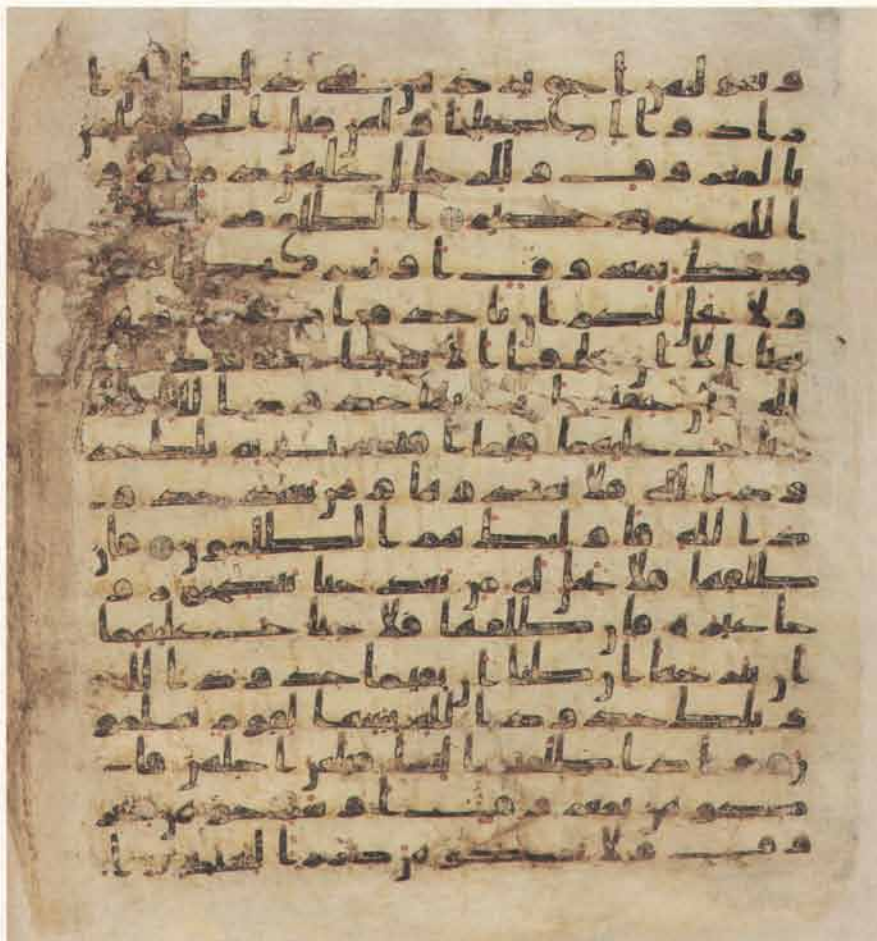 وبعولتهن احق بردهن في ذلك ان ا
رادوا اصلحا ولهن مثل الذي عليهن
بالمعروف وللرجال عليهن درجة و
الله عزيز حكيم الطلق مرتن
فامسك بمعروف او تسريح باحسن
ولا يحل لكم ان تاخذوا مما اتيتموهن
شيا الا ان يخافا الا يقيما حدود
الله فان خفتم الا يقيما حدود الله فلا
جناح عليهما فيما افتدت به تلك حد
ود الله فلا تعتدوها ومن يتعد حدو
د الله فاوليك هم الظلمون فان
طلقها فلا تحل له من بعد حتى تنكح زو
جا غيره فان طلقها فلا جناح عليهما
ان يتراجعا ان ظنا ان يقيما حدود الله
وتلك حدود الله يبينها لقوم يعلمو
ن واذا طلقتم النسا فبلغن اجلهن فا
مسكوهن بمعروف او سرحوهن بمعر
وف ولا تمسكوهن ضرارا لتعتدوا